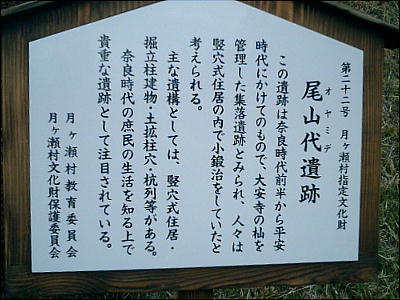 第二十二号 月ヶ瀬村指定文化財
オヤミデ
尾山代遺跡
この遺跡は奈良時代前半から平安
時代にかけてのもので、大安寺の杣を
管理した集落遺跡とみられ、人々は
竪穴式住居の内で小鍛治をしていたと
考えられる。
主な遺構としては、竪穴式住居・
掘立柱建物・土拡柱穴・杭列等がある。
奈良時代の庶民の生活を知る上で
貴重な遺跡として注目されている。
月ヶ瀬村教育委員会
月ヶ瀬村文化財保護委員会